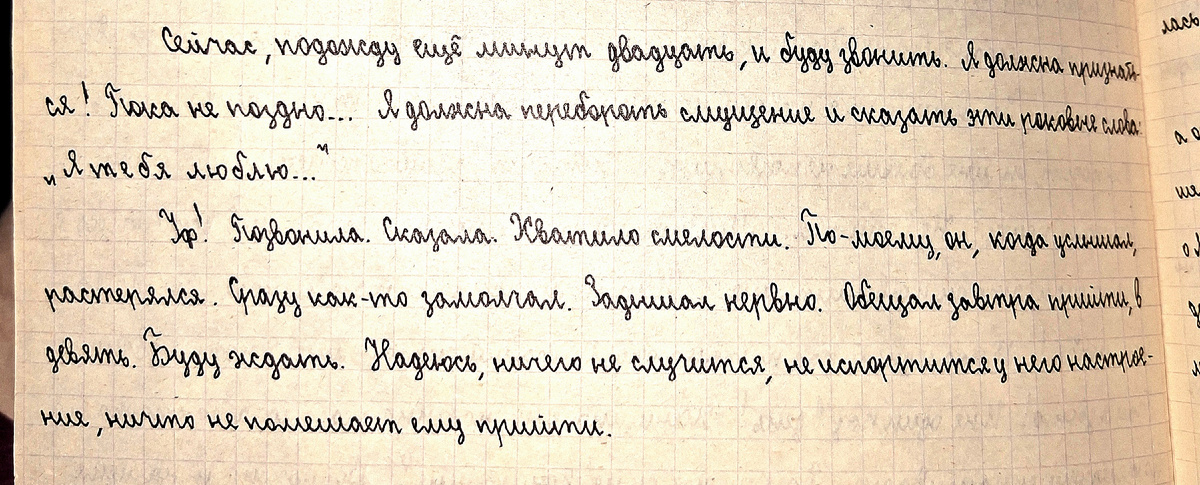 Сейчас, подожду ещё минут двадцать, и буду звонить. Я должна признать-
ся! Пока не поздно... Я должна перебороть смущение и сказать эти роковые слова:
„Я тебя люблю..."
Уф! Позвонила. Сказала. Хватило смелости. По-моему, он, когда услышал,
растерялся. Сразу как-то замолчал. Задышал нервно. Обещал завтра прийти, в
девять. Буду ждать. Надеюсь, ничего не случится, не испортится у него настрое-
ние, ничто не помешает ему прийти.